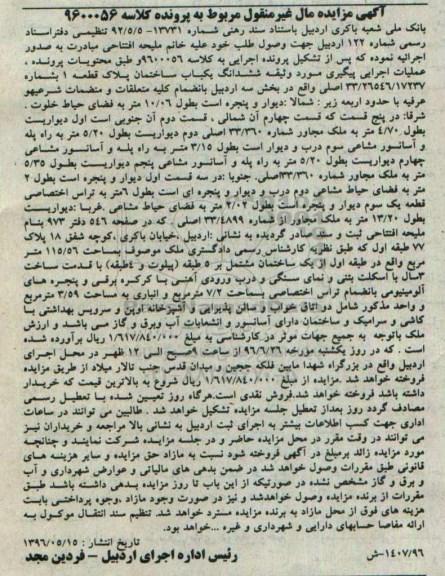 آگهی مزایده مال غیرمنقول مربوط به پرونده کلاسه ۹۶۰۰۰۵۶
بانک ملی شعبه باکری اردبیل باستناد سند رهنی شماره ۱۳۷۳۱- ۹۲/۵/۵ تنظیمی دفتراسناد
رسمی شماره ۱۲۲ اردبیل جهت وصول طلب خود علیه خانم ملیحه افتتاحی مبادرت به صدور
اجرائیه نموده که پس از تشکیل پرونده اجرایی به کلاسه ۹۶۰۰۰۵۶ و طبق محتویات پرونده ،
عملیات اجرایی پیگیری مورد وثیقه ششدانگ یکباب ساختمان پلاک قطعه ۱ بشماره
۳۳/۲۶۵۴۶/۱۷۲۳۷ اصلی واقع در بخش سه اردبیل بانضمام کلیه متعلقات و منضمات شرعیهو
عرفیه با حدود اربعه زیر : شمالا :دیوار و پنجره است بطول ۱۰/۰۶ متر به فضای حیاط خلوت .
شرقا: در پنج قسمت که قسمت چهارم آن شمالی ، قسمت دوم آن جنوبی است اول دیواریست
بطول ۴/۷۰ متر به ملک مجاور شماره ۳۳/۳۶۰ اصلی دوم دیواریست بطول ۵/۲۰ متر به راه پله
و آسانسور مشاعی سوم درب و دیوار است بطول ۳/۱۵ متر به راه پله و آسانسور مشاعی
چهارم دیواریست بطول ۵/۲۰ متر به راه پله و آسانسور مشاعی پنجم دیواریست بطول ۵/۳۵
متر به ملک مجاور شماره ۳۳/۳۶۰اصلی. جنوبا :در سه قسمت اول دیوار و پنجره است بطول ۲
متر به فضای حیاط مشاعی دوم درب و دیوار و پنجره ای است بطول ۶متر به تراس اختصاصی
قطعه یک سوم دیوار و پنجره است بطول ۲/۰۲ متر به فضای حیاط مشاعی .غربا :دیواریست
بطول ۱۳/۲۰ متر به ملک مجاور از شماره ۳۳/۴۸۹۹ اصلی ، که در صفحه ۵۴۶ دفتر ۹۷۳ بنام
ملیحه افتتاحی ثبت و سند صادر گردیده به نشانی :اردبیل .خیابان باکری ،کوچه شفق ۱۸ پلاک
۷۷ طبقه اول که طبق نظریه کارشناس رسمی دادگستری ملک موصوف بمساحت ۱۱۵/۵۶ متر
مربع واقع در طبقه اول از یک ساختمان مشتمل بر ۵ طبقه (پیلوت و ۴طبقه) با قدمت ساخت
۳سال با اسکلت بتنی و نمای سنگی و درب ورودی آهنی با کرکره برقی و پنجره های
آلومینیومی بانضمام تراس اختصاصی بمساحت ۷/۲ مترمربع و انباری به مساحت ۳/۵۹ مترمربع
و واحد مذکور شامل دو اتاق خواب و سالن پذیرایی و آشپزخانه اوپن و سرویس بهداشتی با
کاشی و سرامیک و ساختمان دارای آسانسور و انشعابات آب وبرق و گاز می باشد و ارزش
ملک باتوجه به جمیع جهات موثر در کارشناسی به مبلغ ۱/۶۱۷/۸۴۰/۰۰۰ ریال برآورده شده
است . که در روز یکشنبه مورخه ۹۶/۶/۲۶ از ساعت ۹صبح الی ۱۲ ظهر در محل اجرای
اردبیل واقع در بزرگراه شهدا مابین فلکه ججین و میدان قدس جنب تالار میلاد از طریق مزایده
فروخته خواهد شد .مزایده از مبلغ ۱/۶۱۷/۸۴۰/۰۰۰ ریال شروع به بالاترین قیمت که خریدار
داشته باشد فروخته خواهد شد.فروش نقدی است.هرگاه روز تعیین شده با تعطیل رسمی
مصادف گردد روز بعداز تعطیل جلسه مزایده تشکیل خواهد شد . طالبین می توانند در ساعات
اداری جهت کسب اطلاعات بیشتر به اجرای ثبت اردبیل به نشانی بالا مراجعه و خریداران نیز
می توانند در وقت مقرر در محل مزایده حاضر و در جلسه مزایده شرکت نمایند و چنانچه
مورد مزایده زائد برمبلغ در آگهی فروخته شود نسبت به مازاد حق مزایده و سایر هزینه های
قانونی طبق مقررات وصول خواهد شد در ضمن بدهی های مالیاتی و عوارض شهرداری و آب
و برق و گاز مشخص نشده در صورتیکه از این باب تا روز مزایده بدهی داشته باشد طبق
مقررات از برنده مزایده وصول خواهدشد و نیز در صورت وجود مازاد ،وجوه پرداختی بابت
هزینه های فوق از محل مازاد به برنده مزایده مسترد خواهد شد. تنظیم سند انتقال موکول به
ارائه مفاصا حسابهای دارایی و شهرداری و غیره ...خواهد بود.
تاریخ انتشار : ۱۳۹۶/۰۵/۱۵
رئیس اداره اجرای اردبیل – فردین مجد
۱۴۰۷/۹۶-ش